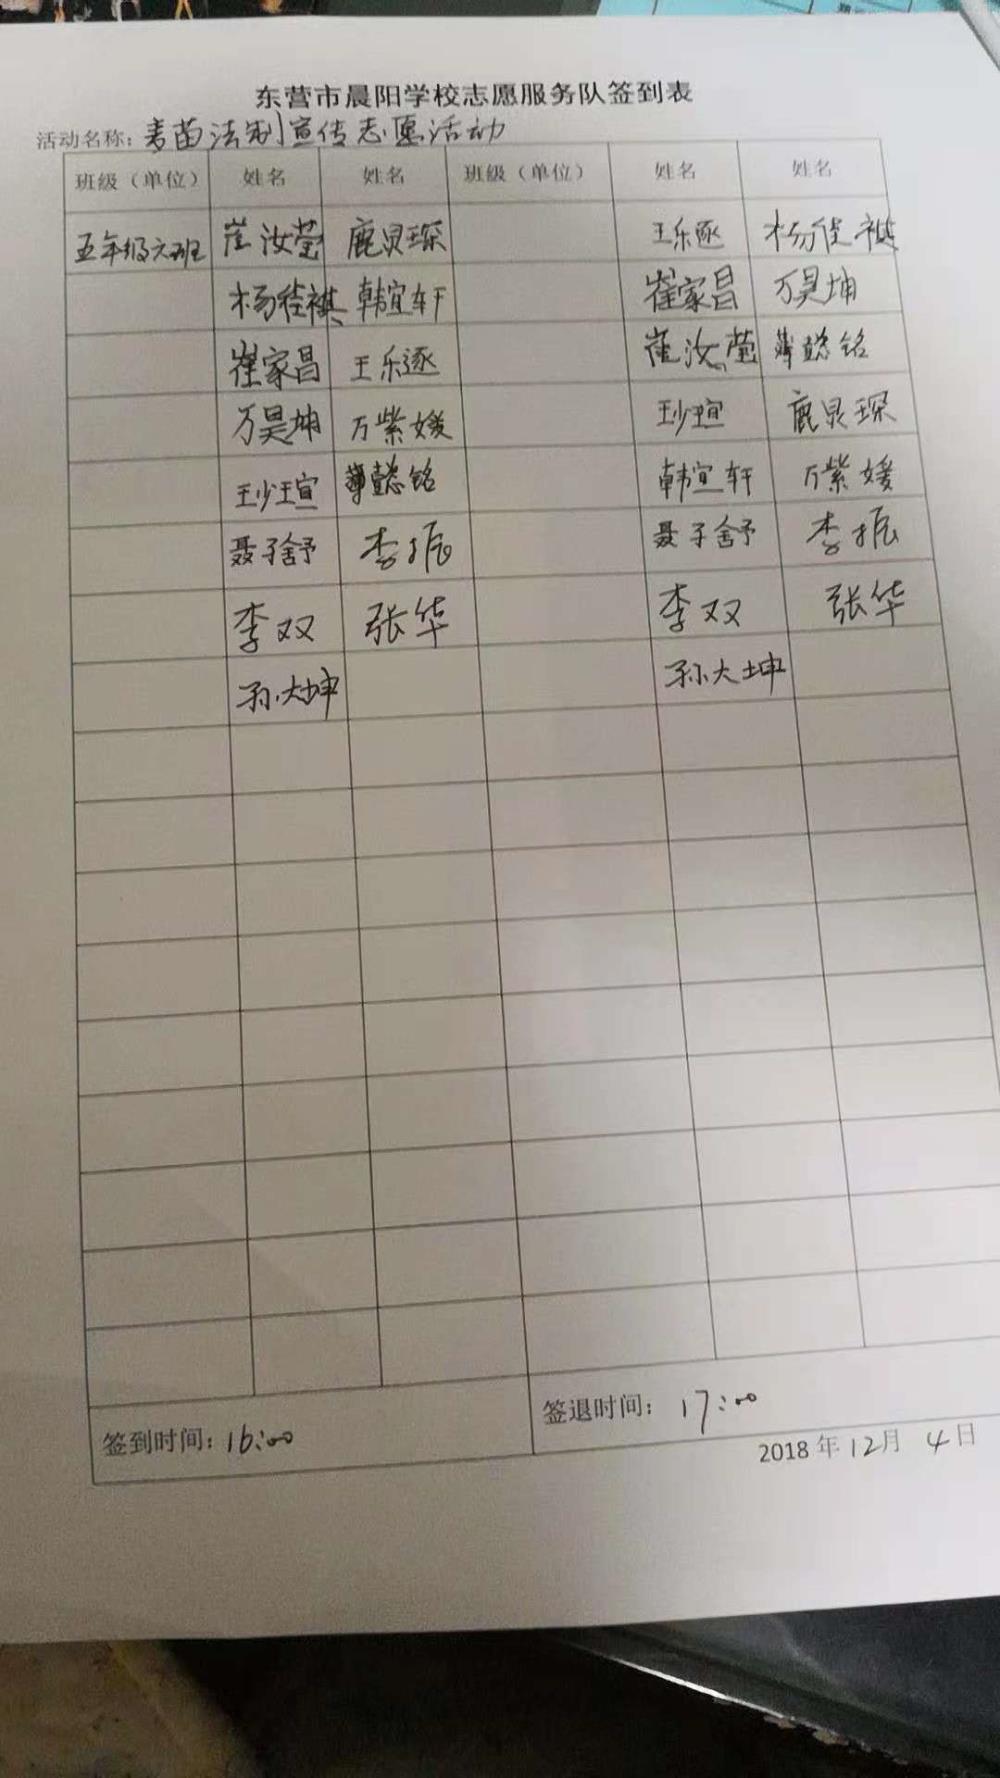 东营市晨阳学校志愿服务队签到表
活动名称：青苗法制宣传志愿活动
班级（单位） 姓名 姓名 班级（单位） 姓名 姓名
五年级六班 崔汝莹 鹿炅琛 王乐逐 杨佳祺
杨佳祺 韩宜轩 崔家昌 万昊坤
崔家昌 王乐逐 崔汝莹 薄懿铭
万昊坤 万紫媛 王少瑄 鹿炅琛
王少瑄 薄懿铭 韩宜轩 万紫媛
聂子舒 李振 聂子舒 李振
李双 张华 李双 张华
孙大坤 孙大坤
签到时间：16:00 签退时间：17:00
2018年12月4日